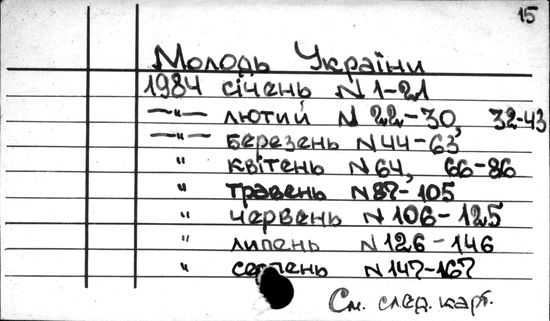 15
Молодь України
1984 січень N 1-21
—"— лютий N 22-30, 32-43
—"— березень N 44-63
" квітень N 64, 66-86
" травень N 87-105
" червень N 106-125
" липень N 126-146
" серпень N 147-167
См. след. карт.